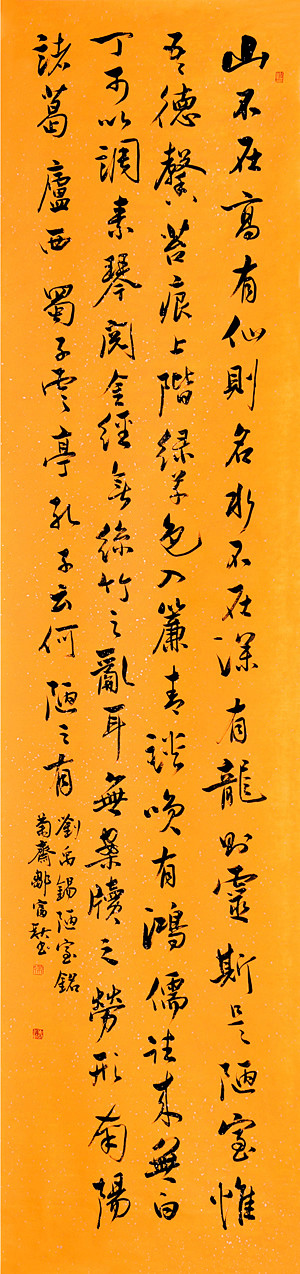 山不在高有仙則名水不在深有龍則靈斯是陋室惟
吾德馨苔痕上階緑草色入簾青談笑有鴻儒往來無白
丁可以調素琴閱金經無絲竹之亂耳無案牘之勞形南陽
諸葛廬西蜀子雲亭孔子云何陋之有
劉禹錫陋室銘
菊齋鄒富書